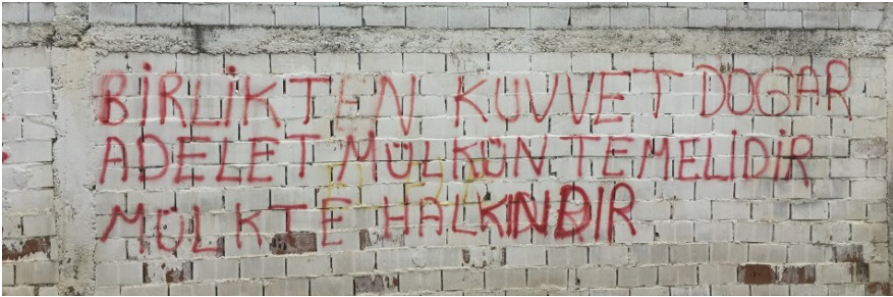 BİRLİKTEN KUVVET DOGAR
ADELET MÜLKÜN TEMELİDİR
MÜLKTE HALKINDIR